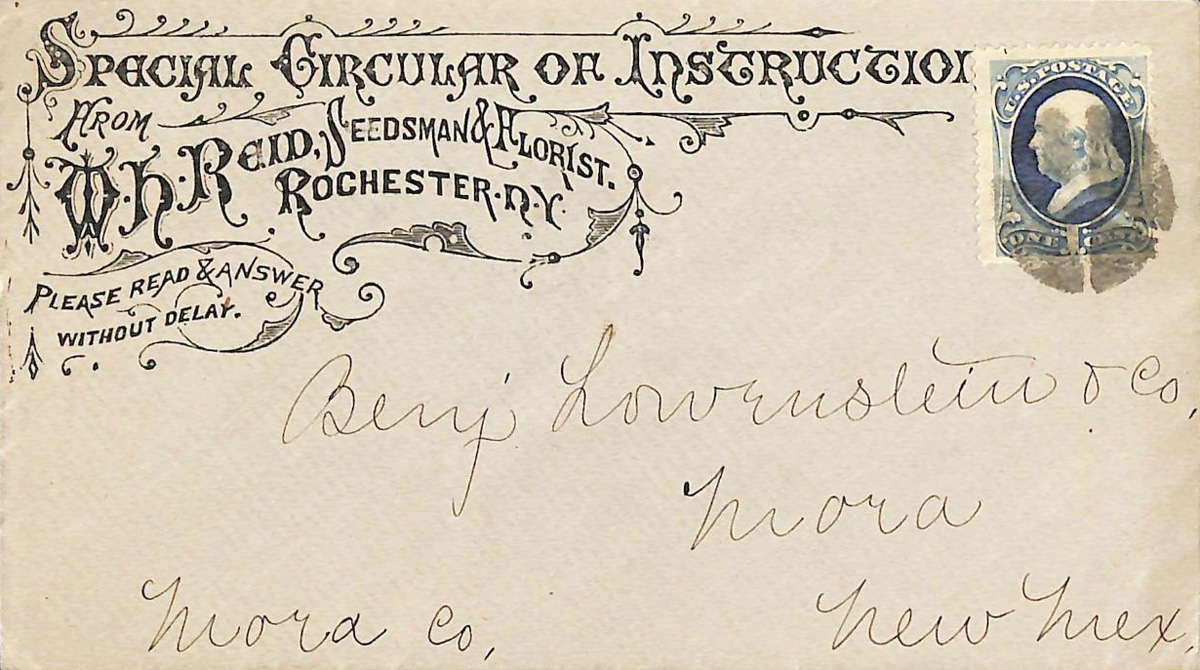 SPECIAL CIRCULAR OF INSTRUCTION
FROM
W. H. REID, SEEDSMAN & FLORIST.
ROCHESTER. N. Y.
PLEASE READ & ANSWER
WITHOUT DELAY.
U.S. POSTAGE
ONE CENT
Benj Lowenstein & Co,
Mora
Mora Co,
New Mex,